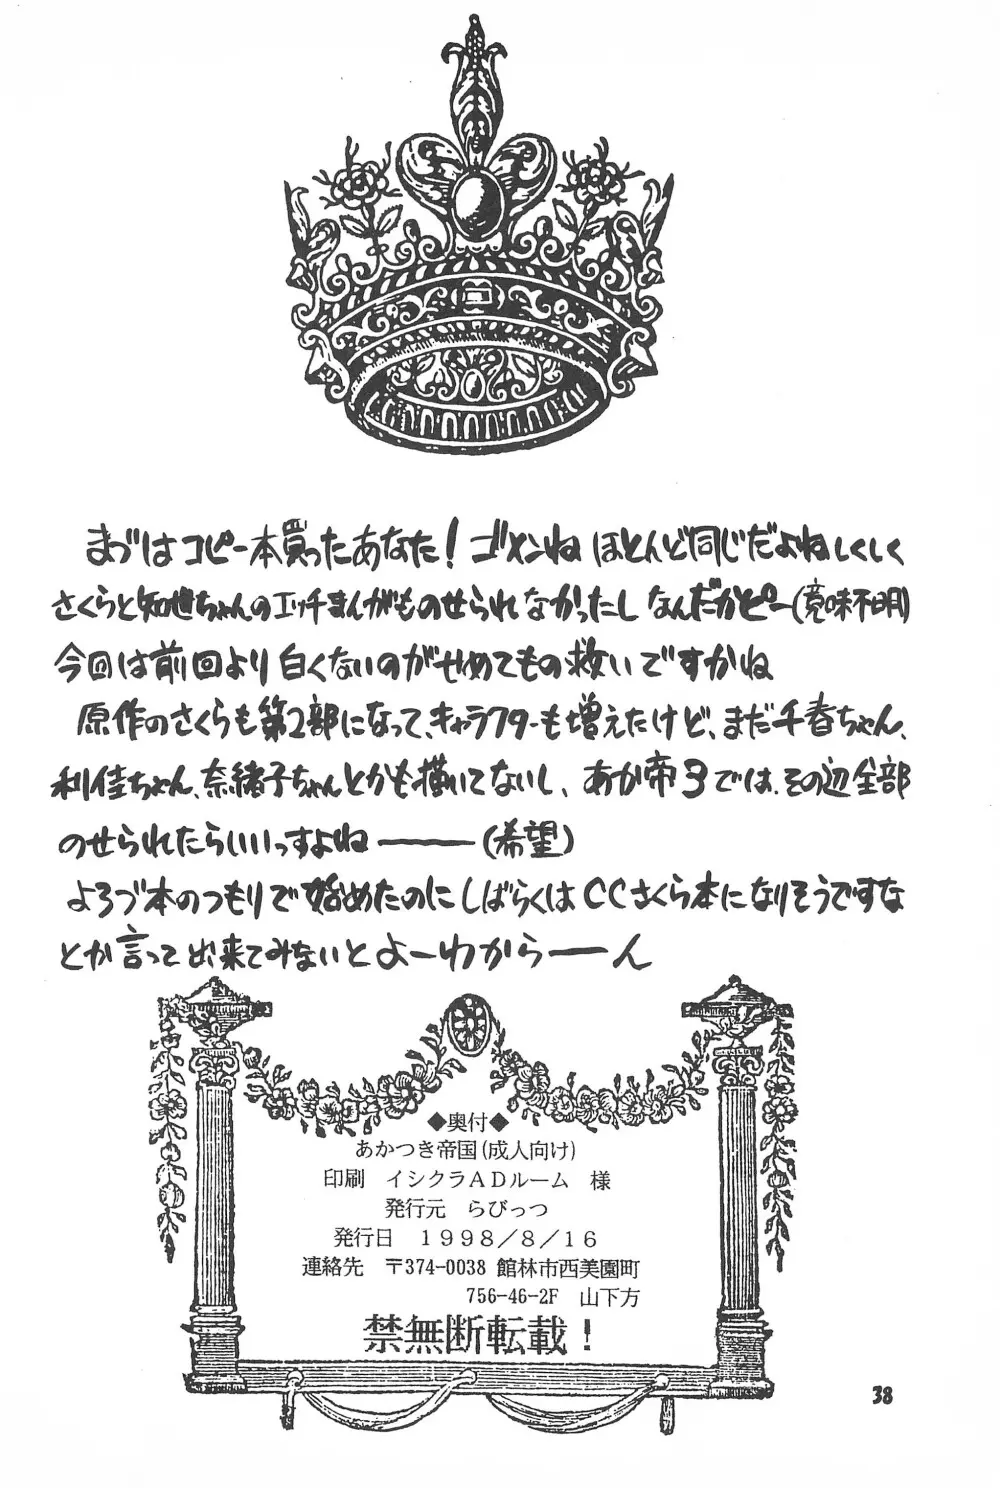 まづはコピー本買ったあなた!ゴメンねほとんど同じだよねしくしく
さくらと知世ちゃんのエッチまんがものせられなかったしなんだかピー(意味不明)
今回は前回より白くないのがせめてもの救いですかね
原作のさくらも第2部になって、キャラクターも増えたけど、まだ千春ちゃん、
利佳ちゃん、奈緒子ちゃんとかも描いてないし、あか帝3では、その辺全部
のせられたらいいっすよねーーー(希望)
よろづ本のつもりで始めたのにしばらくはCCさくら本になりそうですな
とか言って出来てみないとよーわからーーん
◆奥付◆
あかつき帝国(成人向け)
印刷 イシクラADルーム 様
発行元 らびっつ
発行日 1998/8/16
連絡先 〒374-0038 館林市西美園町
756-46-2F 山下方
禁無断転載!
38